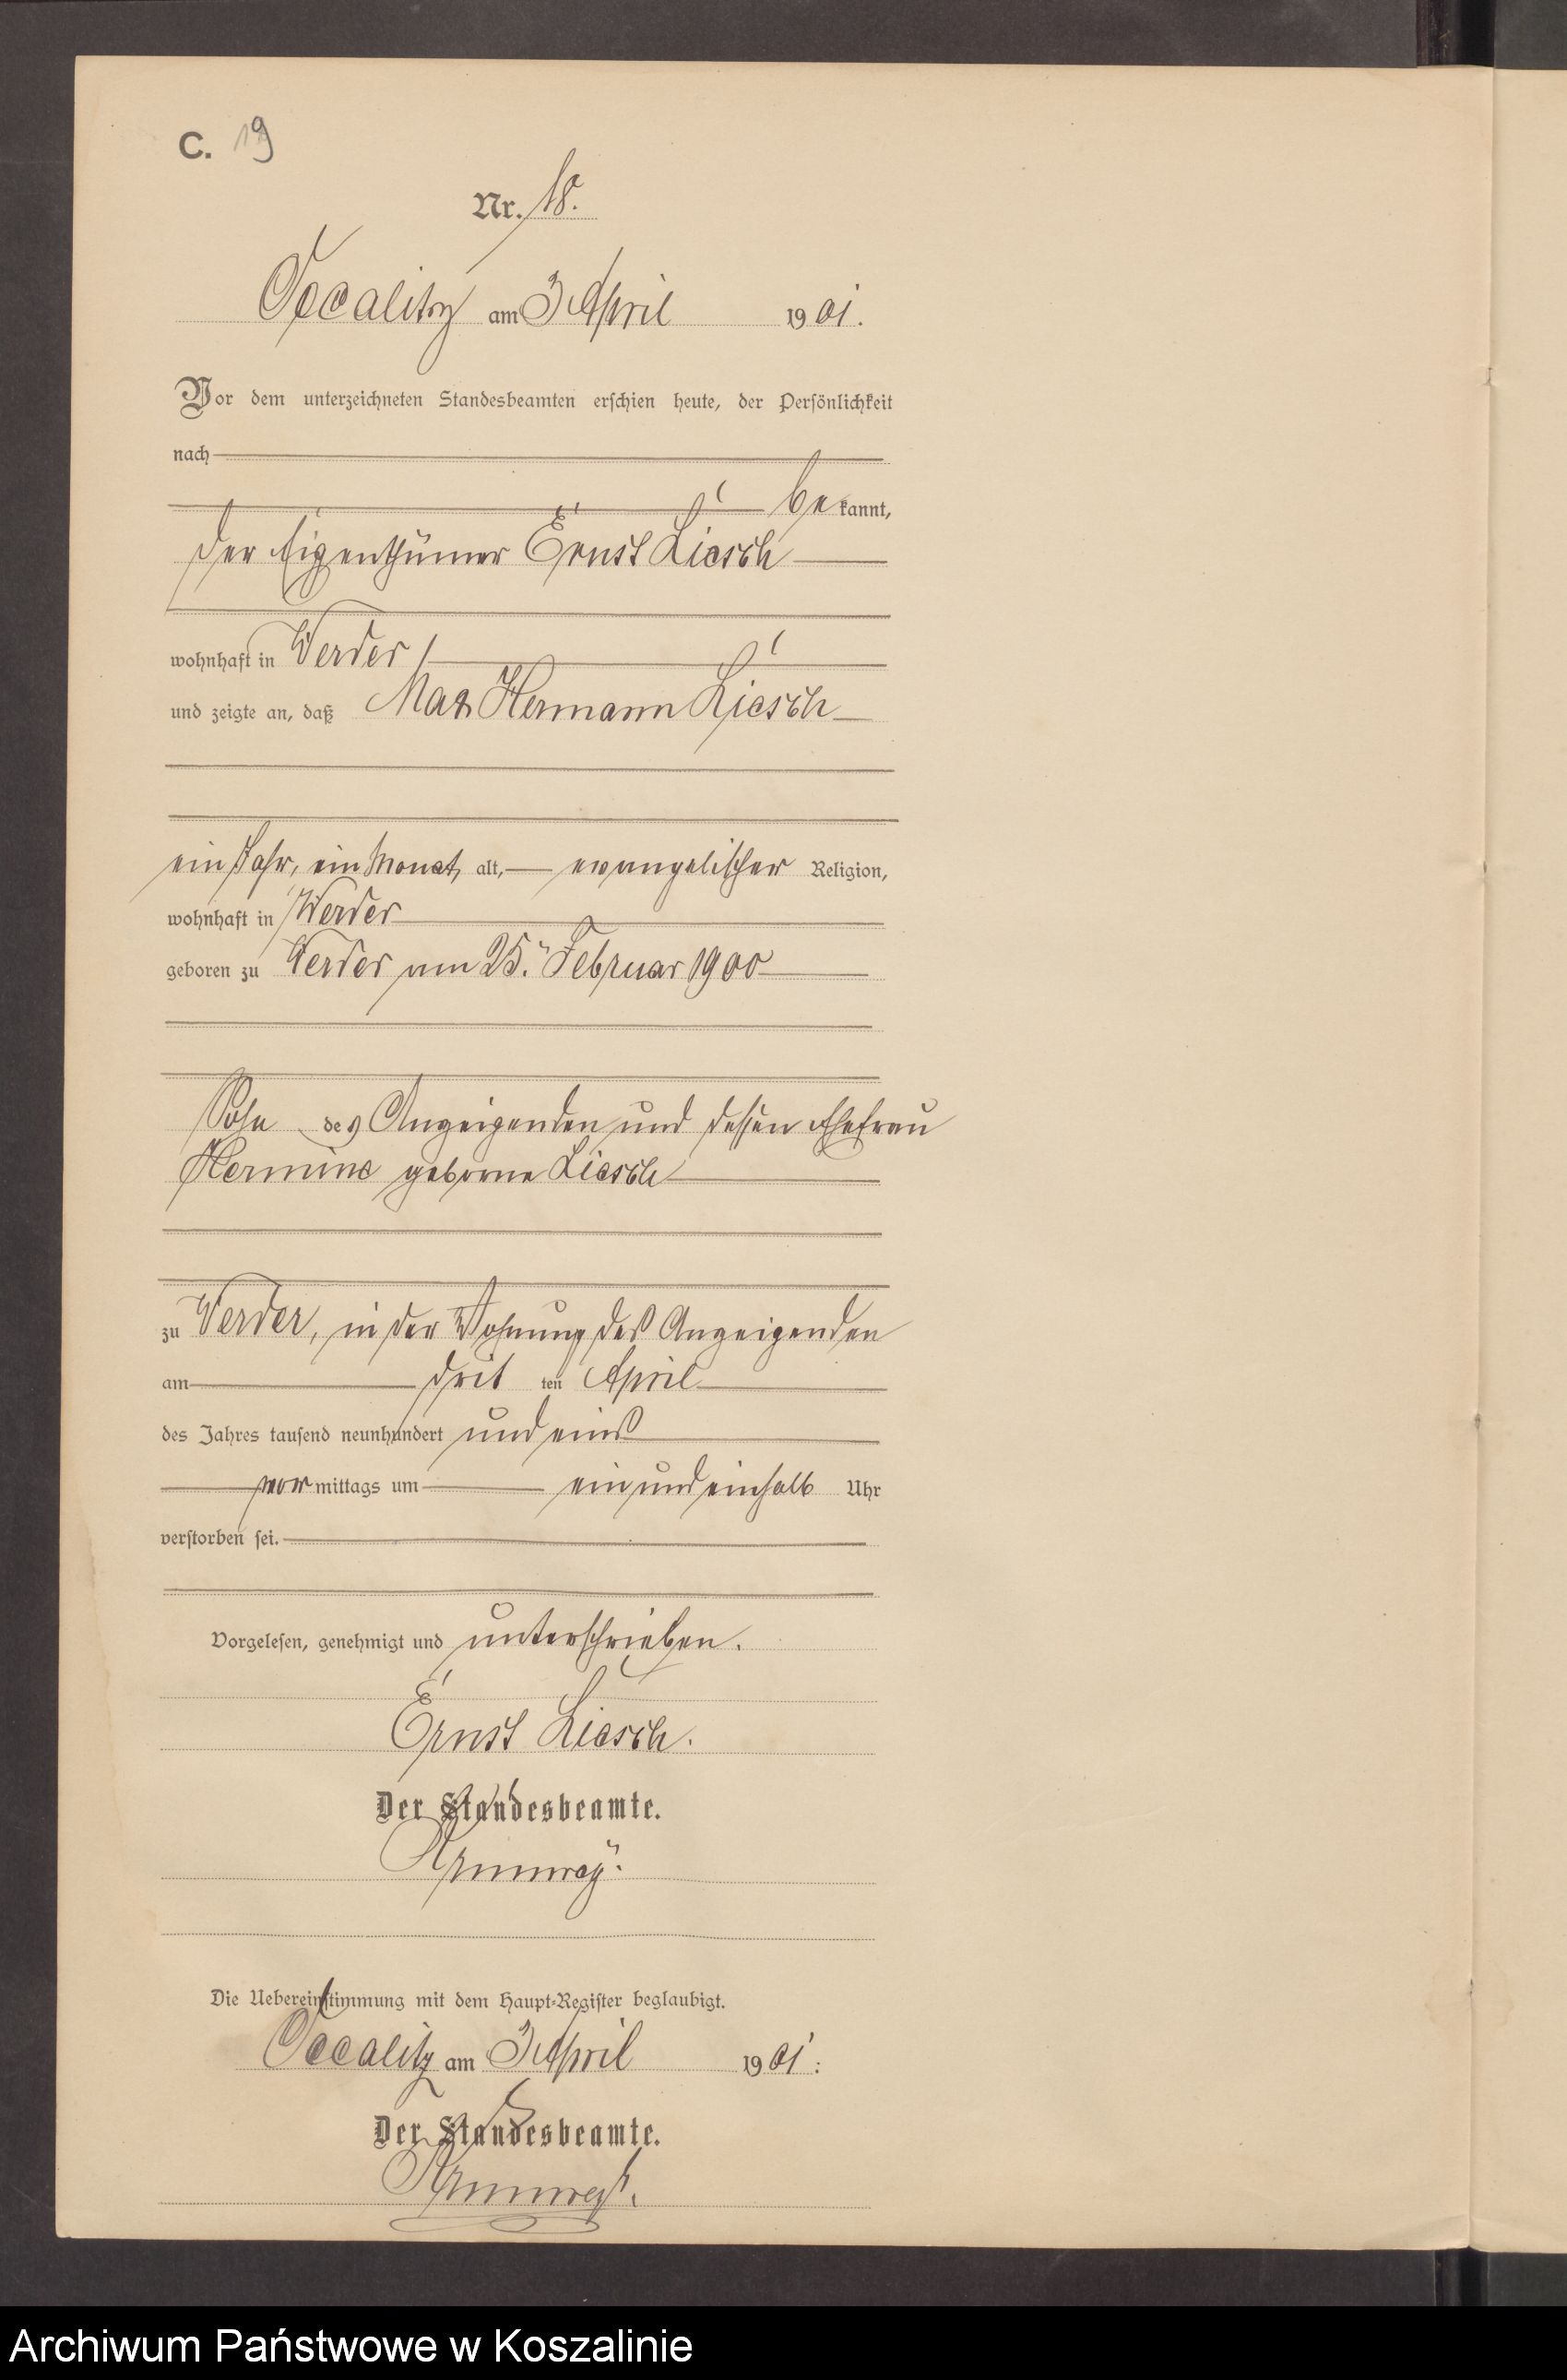 C. 19
Nr. 18.
am 3 April 1901.
Vor dem unterzeichneten Standesbeamten erschien heute, der Persönlichkeit
nach
bekannt,
der Eigenthümer Ernst Liesch
wohnhaft in Werder
und zeigte an, daß Max Hermann Liesch
ein Jahr, ein Monat, alt, evangelischer Religion,
wohnhaft in Werder
geboren zu Werder am 25. Februar 1900
Sohn des Anzeigenden und dessen Ehefrau
Hermine geborne Liesch
zu Werder, in der Wohnung des Anzeigenden
am dritten April
des Jahres tausend neunhundert und eins
vormittags um ein und einhalb Uhr
verstorben sei.
Vorgelesen, genehmigt und unterschrieben.
Ernst Liesch.
Der Standesbeamte.
Die Uebereinstimmung mit dem Haupt-Register beglaubigt.
am 3 April 1901.
Der Standesbeamte.
Archiwum Państwowe w Koszalinie